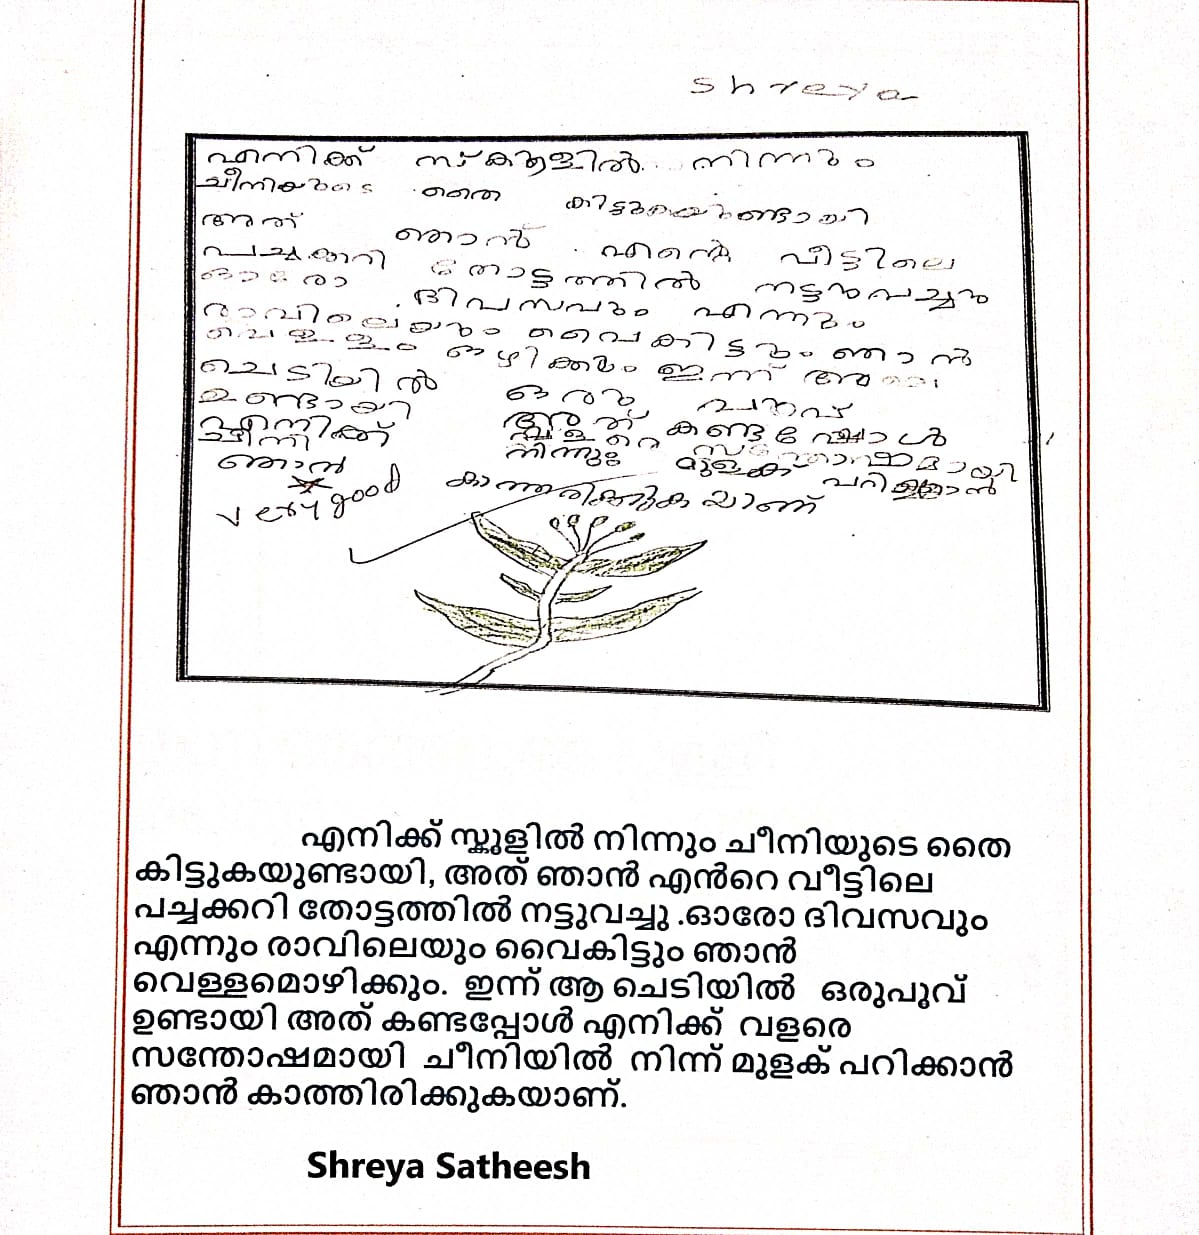 shreya
എനിക്ക് സ്കൂളിൽ നിന്നും
ചീനിയുടെ തൈ കിട്ടുകയുണ്ടായി
അത് ഞാൻ എന്റെ വീട്ടിലെ
പച്ചക്കറി തോട്ടത്തിൽ നട്ടുവച്ചു
ഓരോ ദിവസവും എന്നും
രാവിലെയും വൈകിട്ടും ഞാൻ
വെള്ളം ഒഴിക്കും ഇന്ന് ആ
ചെടിയിൽ ഒരു പൂവ്
ഉണ്ടായി അത് കണ്ടപ്പോൾ
എനിക്ക് വളരെ സന്തോഷമായി
ചീനി നിന്നും മുളക് പറിക്കാൻ
ഞാൻ കാത്തരിക്കുകയാണ്
very good
എനിക്ക് സ്കൂളിൽ നിന്നും ചീനിയുടെ തൈ
കിട്ടുകയുണ്ടായി, അത് ഞാൻ എൻറെ വീട്ടിലെ
പച്ചക്കറി തോട്ടത്തിൽ നട്ടുവച്ചു .ഓരോ ദിവസവും
എന്നും രാവിലെയും വൈകിട്ടും ഞാൻ
വെള്ളമൊഴിക്കും. ഇന്ന് ആ ചെടിയിൽ ഒരുപൂവ്
ഉണ്ടായി അത് കണ്ടപ്പോൾ എനിക്ക് വളരെ
സന്തോഷമായി ചീനിയിൽ നിന്ന് മുളക് പറിക്കാൻ
ഞാൻ കാത്തിരിക്കുകയാണ്.
Shreya Satheesh